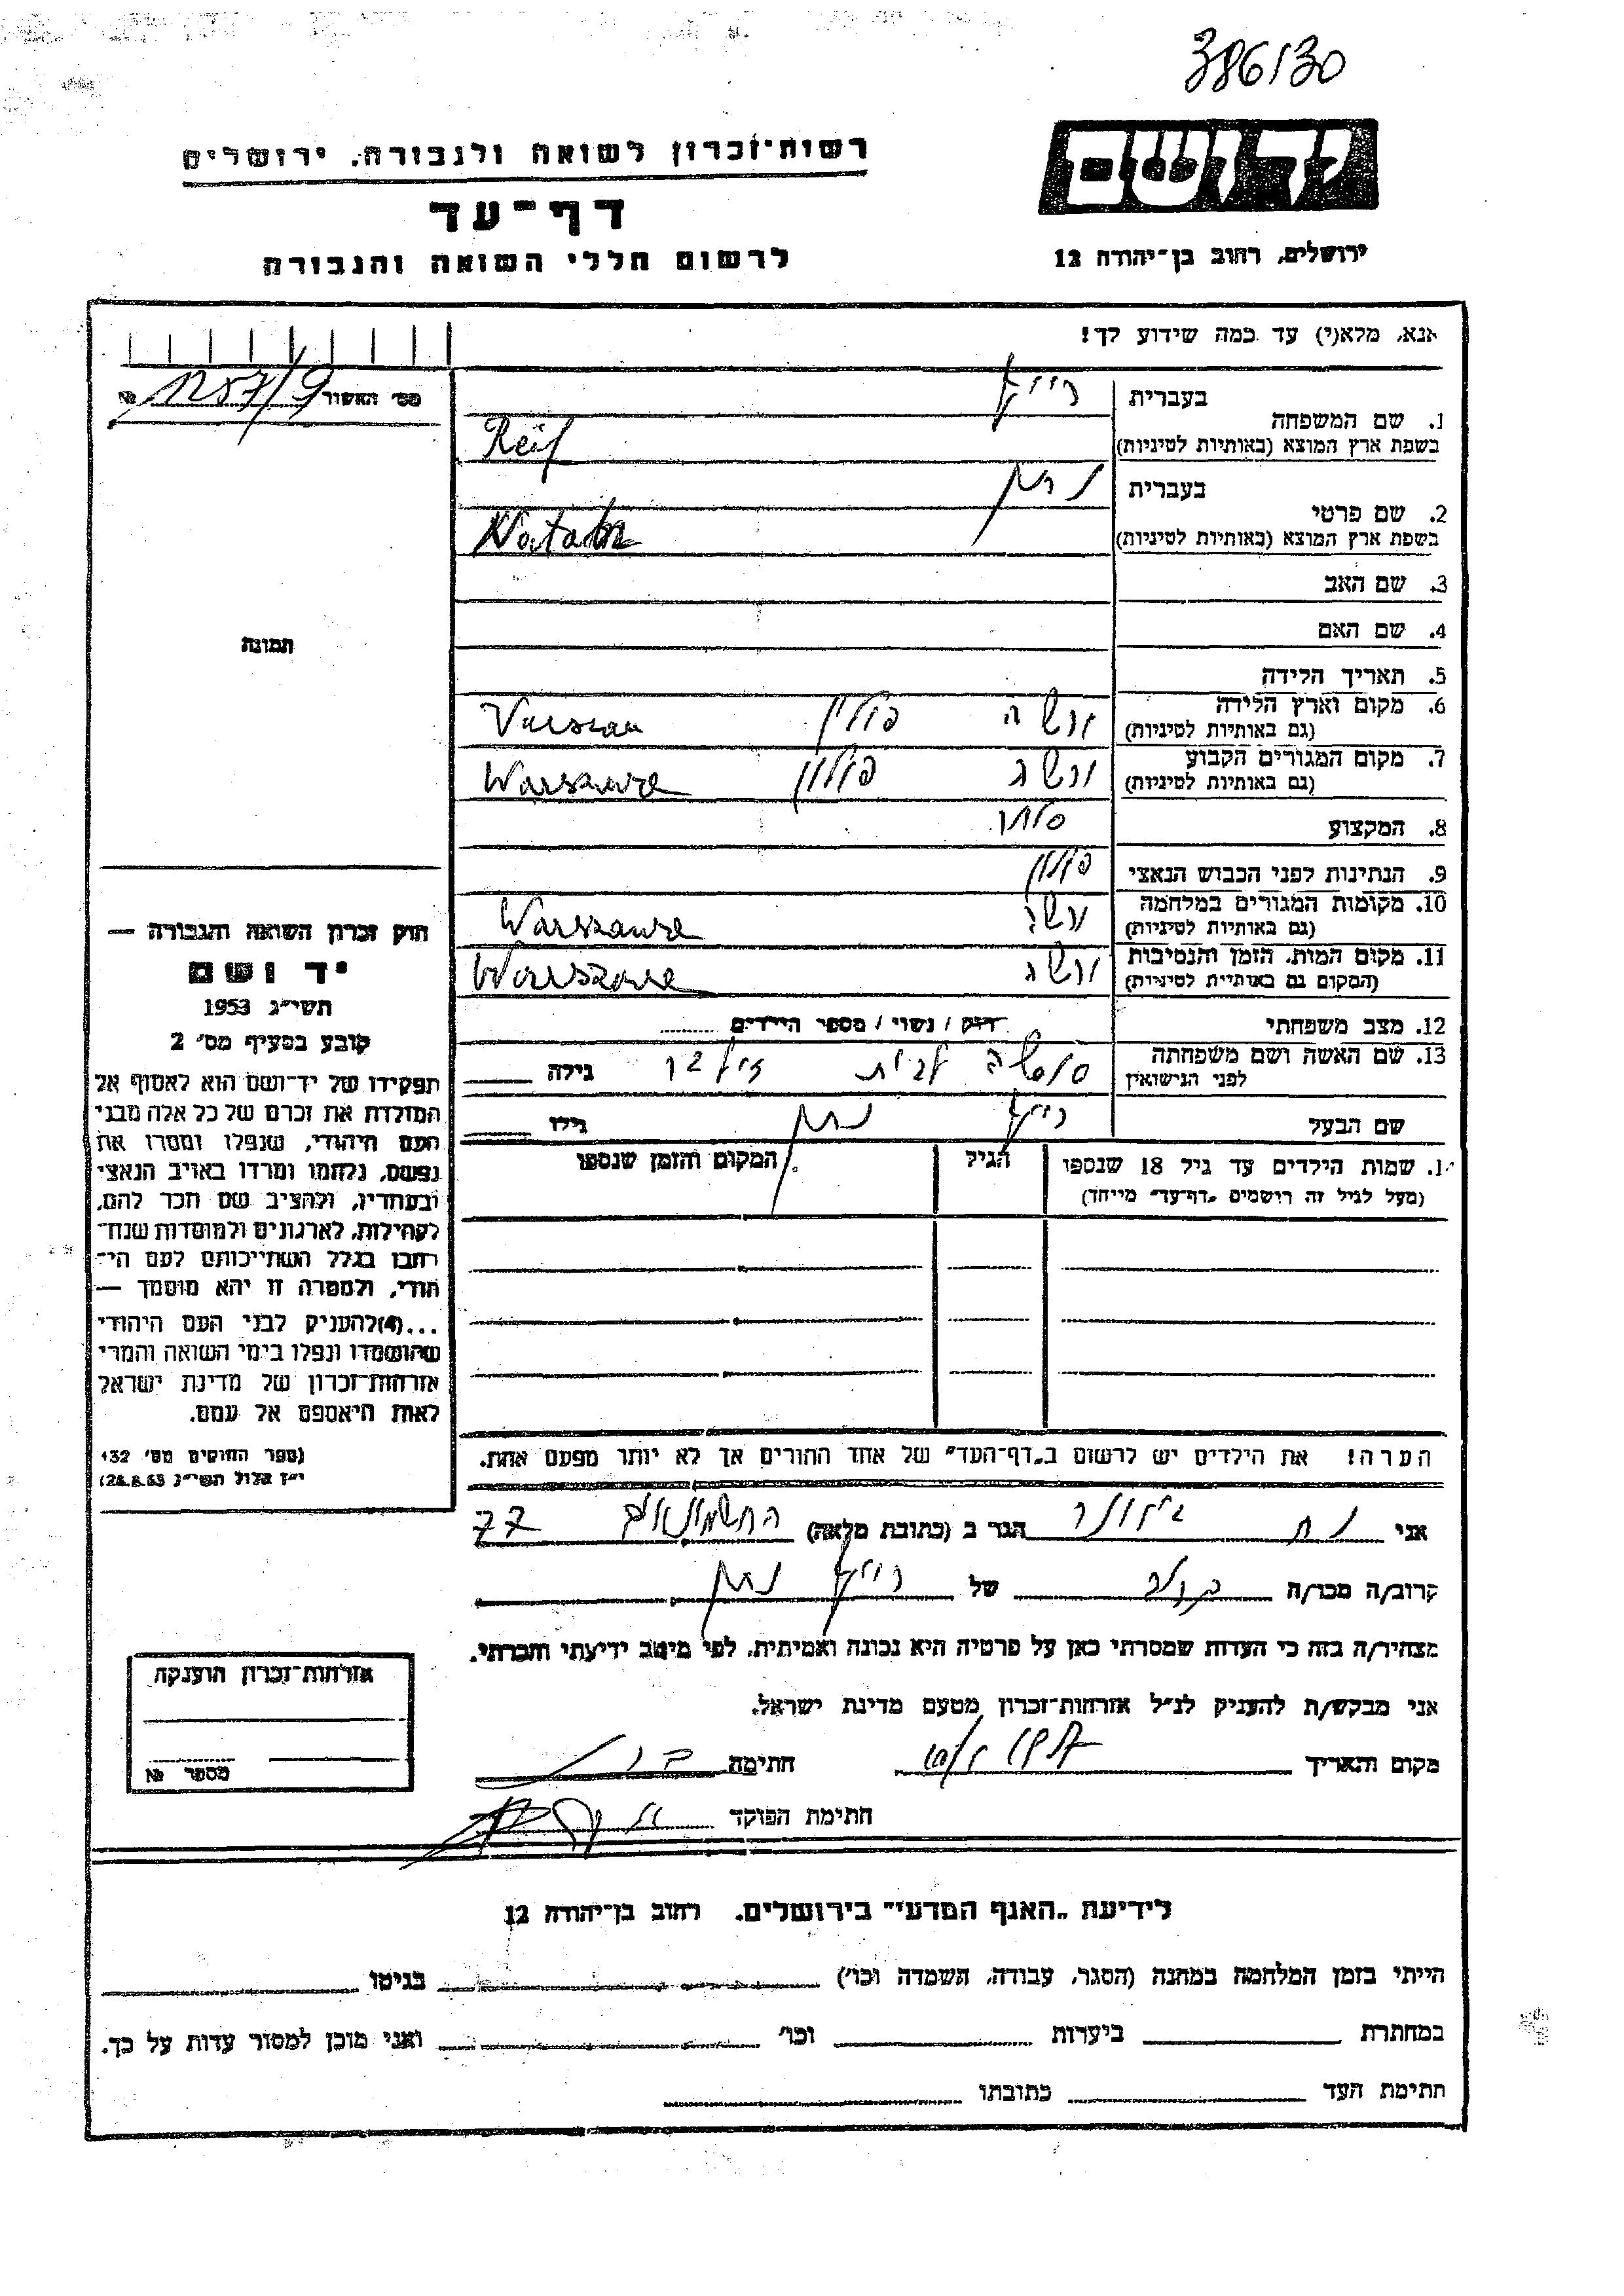 386/30
רשות־זכרון לשואה ולגבורה, ירושלים
יד ושם
דף־עד
לרשום חללי השואה והגבורה
ירושלים, רחוב בן־יהודה 12
אנא, מלא(י) עד כמה שידוע לך!
מס׳ האשור № 1257/9
1. שם המשפחה
בעברית רייף
בשפת ארץ המוצא (באותיות לטיניות) Reif
2. שם פרטי
בעברית נתן
בשפת ארץ המוצא (באותיות לטיניות) Natan
3. שם האב
4. שם האם
5. תאריך הלידה
6. מקום וארץ הלידה ורשה פולין
(גם באותיות לטיניות)
7. מקום המגורים הקבוע ורשה פולין Warszawa
(גם באותיות לטיניות)
8. המקצוע סוחר
9. הנתינות לפני הכבוש הנאצי פולין
10. מקומות המגורים במלחמה ורשה Warszawa
(גם באותיות לטיניות)
11. מקום המות, הזמן והנסיבות ורשה Warszawa
(המקום גם באותיות לטיניות)
12. מצב משפחתי רווק / נשוי / מספר הילדים
13. שם האשה ושם משפחתה לבית גילה
לפני הנישואין
שם הבעל רייף נתן גילו
שמות הילדים עד גיל 18 שנספו הגיל המקום והזמן שנספו
(מעל לגיל זה רושמים „דף־עד״ מיוחד)
הערה! את הילדים יש לרשום ב„דף־העד״ של אחד ההורים אך לא יותר מפעם אחת.
תמונה
חוק זכרון השואה והגבורה —
יד ושם
תשי״ג 1953
קובע בסעיף מס׳ 2
תפקידו של יד־ושם הוא לאסוף אל
המולדת את זכרם של כל אלה מבני
העם היהודי, שנפלו ומסרו את
נפשם, נלחמו ומרדו באויב הנאצי
ובעוזריו, ולהציב שם וזכר להם,
לקהילות, לארגונים ולמוסדות שנח־
רבו בגלל השתייכותם לעם הי־
הודי, ולמטרה זו יהא מוסמך —
...(4)להעניק לבני העם היהודי
שהושמדו ונפלו בימי השואה והמרי
אזרחות־זכרון של מדינת ישראל
לאות היאספם אל עמם.
(ספר החוקים מס׳ 132
י״ז אלול תשי״ג 28.8.53)
אני נח הגר ב (כתובת מלאה) החשמונאים 77
קרוב/ה מכר/ה של רייף נתן
מצהיר/ה בזה כי העדות שמסרתי כאן על פרטיה היא נכונה ואמיתית, לפי מיטב ידיעתי והכרתי.
אני מבקש/ת להעניק לנ״ל אזרחות־זכרון מטעם מדינת ישראל.
מקום ותאריך חתימה
חתימת הפוקד
אזרחות־זכרון הוענקה
מספר №
לידיעת „האגף המדעי״ בירושלים, רחוב בן־יהודה 12
הייתי בזמן המלחמה במחנה (הסגר, עבודה, השמדה וכו׳) בגיטו
במחתרת ביערות וכו׳ ואני מוכן למסור עדות על כך.
חתימת העד כתובתו